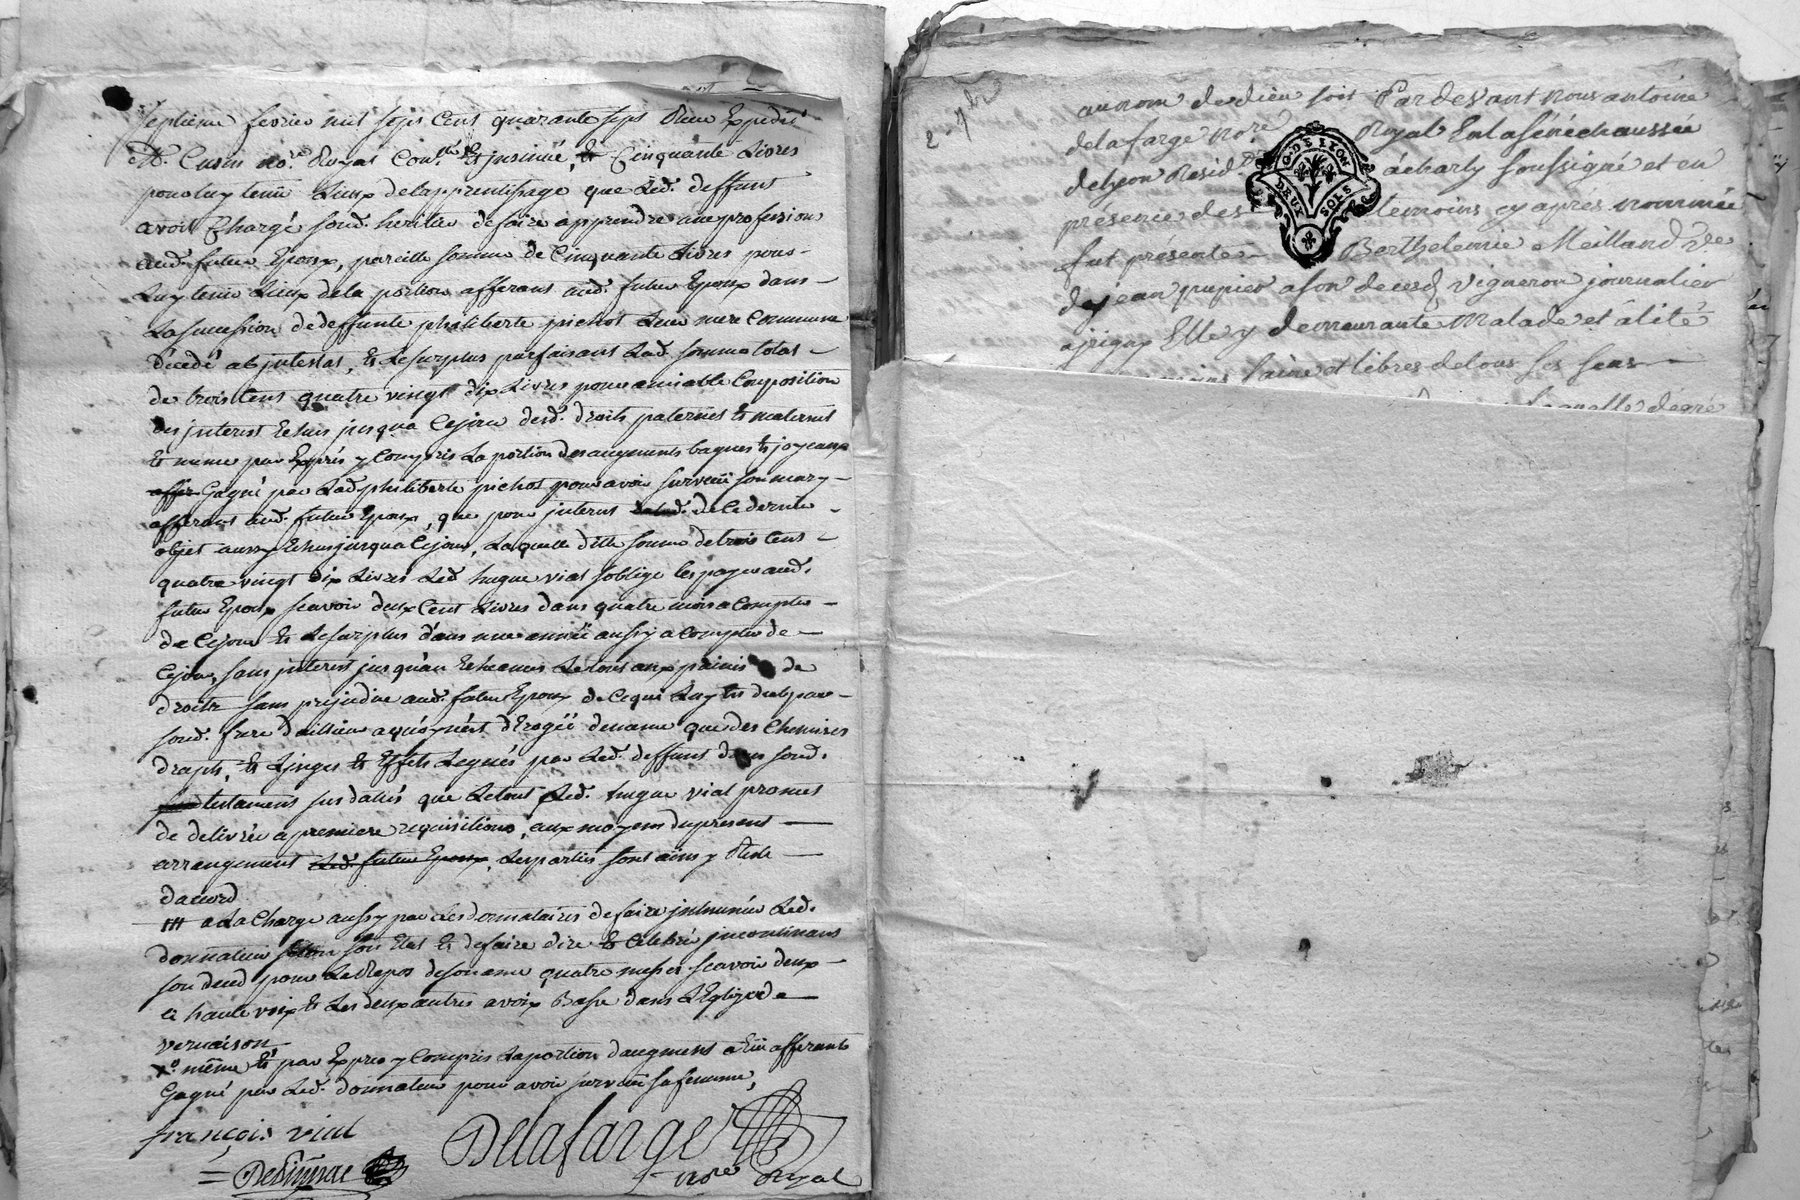 Septieme fevrier mil sept Cent quarante sept Reçu Expedié
Me. Cusin nore. Royal Conlle. Et jnsinué, Et Cinquante Livres
pour luy tenir Lieux de lapprentissage que Led. deffunt
avoit Chargé sond. heritier de faire apprendre une profession
aud. futur Epoux, pareille somme de Cinquante Livres pour
Luy tenir Lieux de la portion afferant aud. futur Epoux dans
La succession de deffunte philiberte pichot Leur mere Commune
décédé abjntestat, Et Le surplus parfaisant Lad. somme totas
de trois Cent quatre vingt dix Livres pour amiable Composition
des jnterest Echus jusqua Cejour desd. droits paternels Et maternels
Et même par Exprés y Compris La portion des augments bagues Et joyeaux
Gagné par Lad. philiberte pichot pour avoir survecü son mary
afferant aud. futur Epoux, que pour jnterest de Ce dernier
objet aussy Echus jusqua Cejour, Laquelle ditte somme de trois Cent
quatre vingt dix Livres Led. hugue vial soblige Les payer aud.
futur Epoux scavoir deux Cent Livres dans quatre mois a Compter
de Cejour Et Le surplus dans une année aussy a Compter de
Cejour, sans jnterest jusquau Echeances Le tout aux peines de
droits sans prejudice aud. futur Epoux de Ce qui Luy Est dub par
sond. frere dailleur aquoy n'est derogée de meme que des Chemises
draps, Et Linges Et Effets Legués par Led. deffunt dans sond.
testament sus datté que Le tout Led. hugue vial promet
de delivrer a premiere requisitions, aux moyens du present
arrangement Led. futur Epoux, Les parties sont ainsy Reste
dacord
+++ a La Charge aussy par Les donnataires de faire jnhumer Led.
donnateur selon son Etat Et de faire dire Et Celebrer jncontinant
son deced pour Le Repos de son ame quatre messes scavoir deux
a haute voix Et Les deux autres a voix Basse dans L'Eglize de
vernaison
même Et par Expres y Compris La portion daugment a Lui afferante
Gagné par Led. donnateur pour avoir survecu sa femme,
françois vial
Delafarge
nore Royal
2 - 7bre
au nom de dieu soit Pardevant nous antoine
delafarge nore Royal En la sénéchaussée
de lyon Resid.t à charly soussigné et en
présence des temoins cy après nommée
fut présente Berthelemie Meilland Ve
de jean pupier a son deced vigneron journalier
a jrigny Elle y demeurante Malade et alité
saine et libres de tous ses sens
laquelle de gré
G. DE LYON
DEUX SOLS